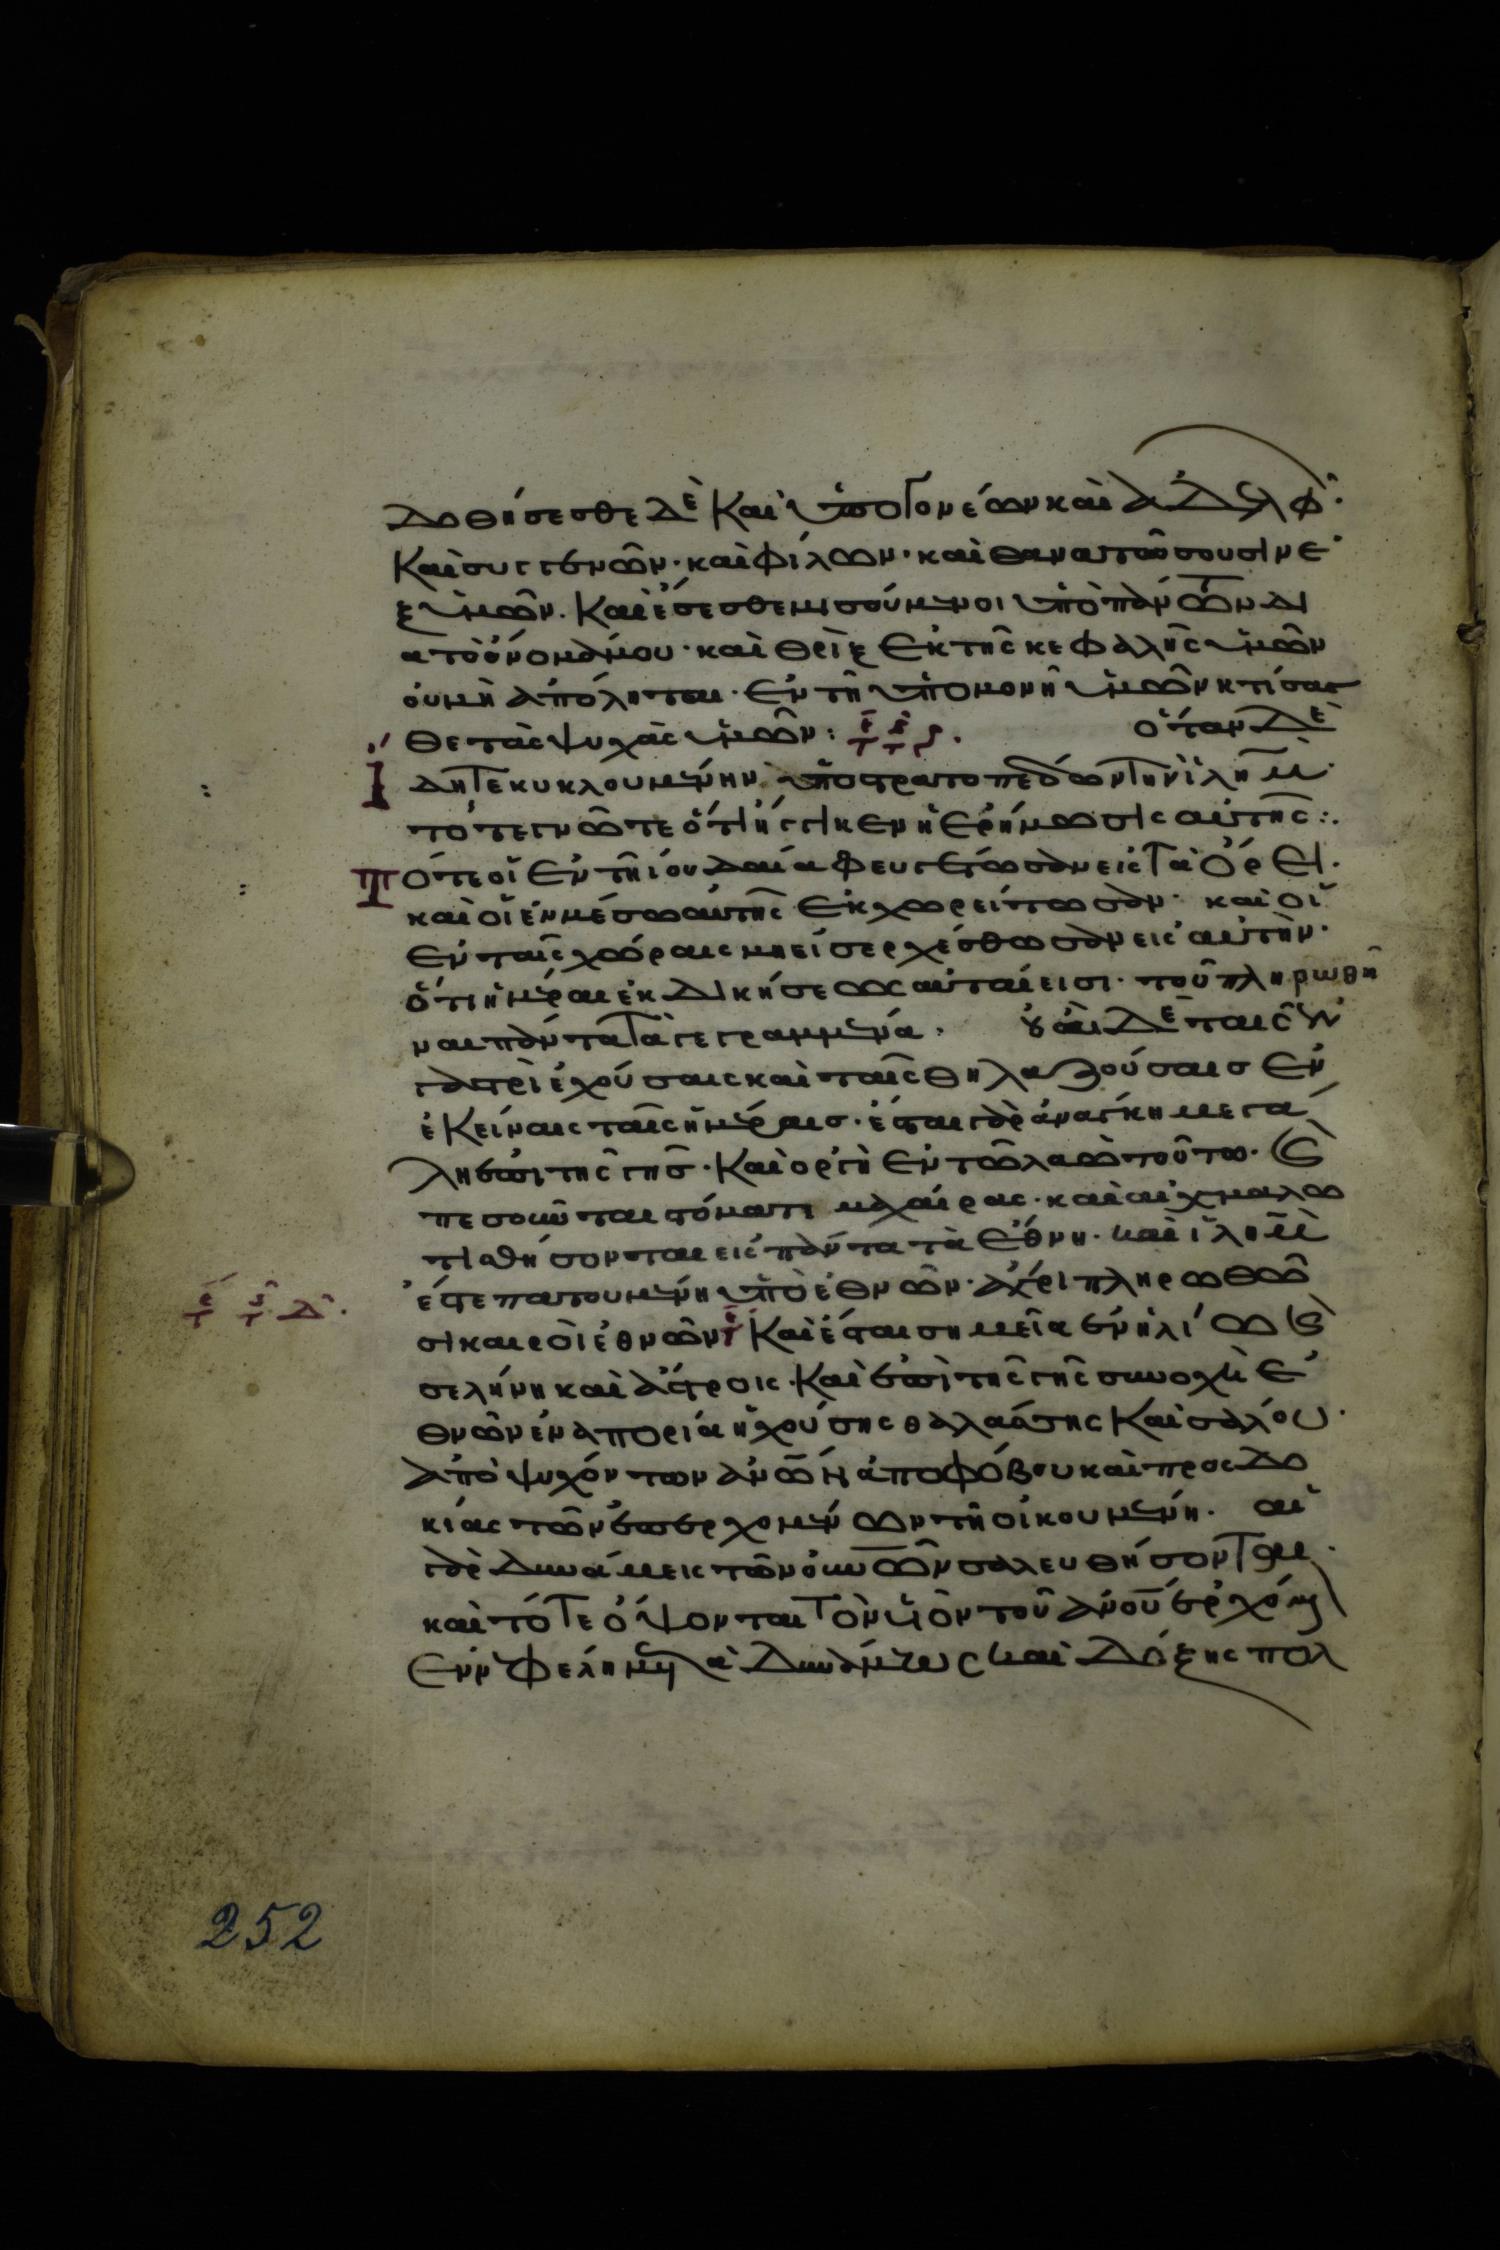 δοθήσεσθε δὲ Καὶ ὑπο γονέων καὶ ἀδελφ·
Καὶ συγγενῶν· καὶ φίλων· καὶ θανατώσουσιν ἐ
ξ ὑμῶν. Καὶ ἔσεσθε μισούμενοι ὑπὸ πάντων δι
α τὸ ὄνομά μου· καὶ θρὶξ ἐκ τῆς κεφαλῆς ὑμῶν
οὐ μὴ ἀπόληται· ἐν τῇ ὑπομονῇ ὑμῶν κτίσασ
θε τὰς ψυχὰς ὑμῶν: ὅταν δὲ
Ἴδητε κυκλουμένην ὑπο στρατοπέδων τὴν ἰλημ·
τότε γνῶτε ὅτι ἤγγικεν ἡ ἐρήμωσις αὐτῆς:.
Τότε οἱ ἐν τῇ ἰουδαία φευγέτωσαν εἰς τὰ ὄρει·
καὶ οἱ ἐν μέσω αὐτῆς ἐκχωρείτωσαν· καὶ οἱ
ἐν ταῖς χώραις μη εἰσερχέσθωσαν εἰς αὐτὴν·
ὅτι ἡμέραι ἐκδικήσεως αὗταί εισι· τοῦ πληρωθῆ
ναι πάντα τὰ γεγραμμένα. οὐαὶ δὲ ταῖς ἐν
γαστρὶ ἐχούσαις καὶ ταῖς θηλαζούσαισ ἐν
ἐκείναις ταῖς ἡμέραισ· ἔσται γὰρ ἀνάγκη μεγά
λη ἐπὶ τῆς γῆς· Καὶ ὀργὴ ἐν τῶ λαῶ τούτω· Καὶ
πεσοῦνται στόματι μαχαίρας· καὶ αἰχμαλω
τισθήσονται εἰς πάντα τὰ ἔθνη· καὶ ἰλημ
ἔσται πατουμένη ὑπὸ ἐθνῶν· ἄχρι πληρωθῶ
σι καιροὶ ἐθνῶν Καὶ ἔσται σημεῖα ἐν ἡλίω καὶ
σελήνη καὶ ἄστροις· Καὶ ἐπὶ τῆς γῆς συνοχὴ ἐ
θνῶν ἐν ἀπορία ἠχούσης θαλάσσης Καὶ σάλου·
ἀποψυχόντων ἀνων ἀπο φόβου καὶ προσδο
κίας τῶν ἐπερχομένων τῆ οἰκουμένη. αἱ
γὰρ δυνάμεις τῶν οὐνων σαλευθήσονται·
καὶ τότε ὄψονται τὸν υἱὸν τοῦ ἀνου ἐρχόμε
ἐν νεφέλη μετὰ δυνάμεως καὶ δόξης πολ
252